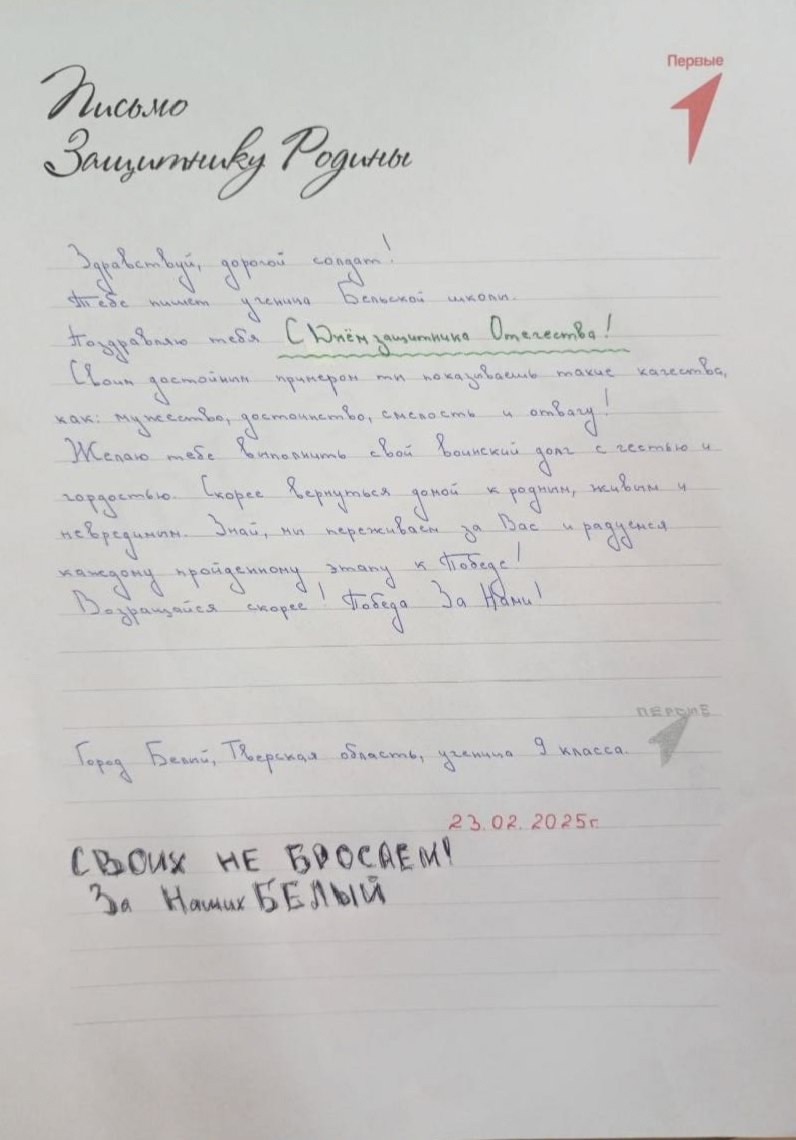 Первые
Письмо
Защитнику Родины
Здравствуй, дорогой солдат!
Тебе пишет ученица Бельской школы.
Поздравляю тебя С Днём защитника Отечества!
Своим достойным примером ты показываешь такие качества,
как: мужество, достоинство, смелость и отвагу!
Желаю тебе выполнить свой воинский долг с честью и
гордостью. Скорее вернуться домой к родным, живым и
невредимым. Знай, мы переживаем за Вас и радуемся
каждому пройденному этапу к Победе!
Возращайся скорее! Победа За Нами!
ПЕРВЫЕ
Город Белый, Тверская область, ученица 9 класса.
23.02.2025г.
СВОИХ НЕ БРОСАЕМ!
За Наших БЕЛЫЙ